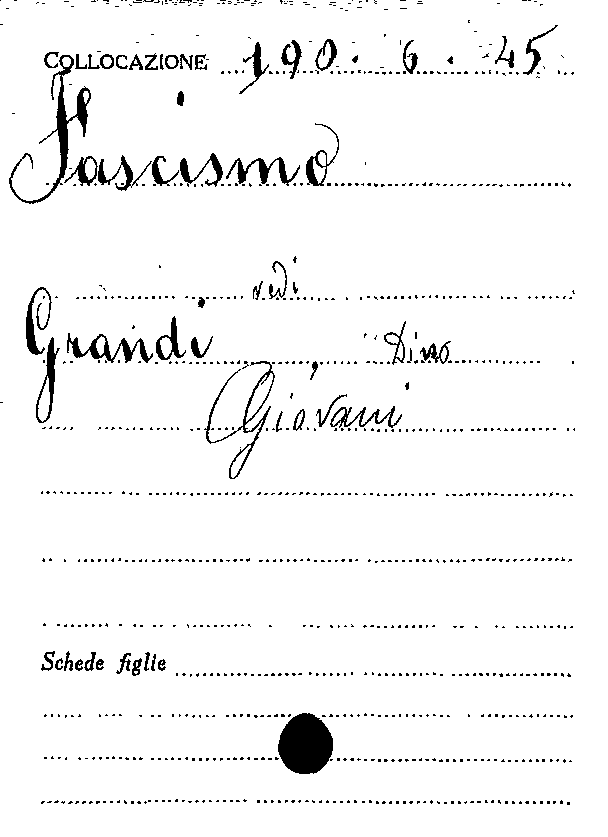 COLLOCAZIONE 190. 6. 45
Fascismo
vedi
Grandi, Dino
Giovani
Schede figlie